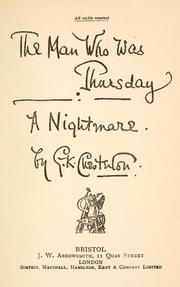 All rights reserved
The Man Who Was
Thursday
A Nightmare.
by G. K. Chesterton.
BRISTOL
J. W. ARROWSMITH, 11 QUAY STREET
LONDON
SIMPKIN, MARSHALL, HAMILTON, KENT & COMPANY LIMITED